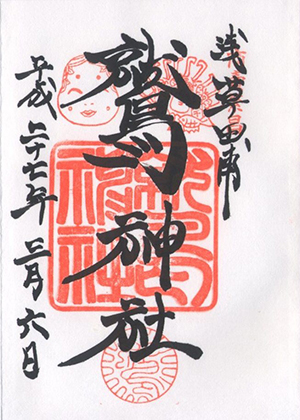 浅草田甫
鷲神社
鷲神社
平成二十七年三月六日